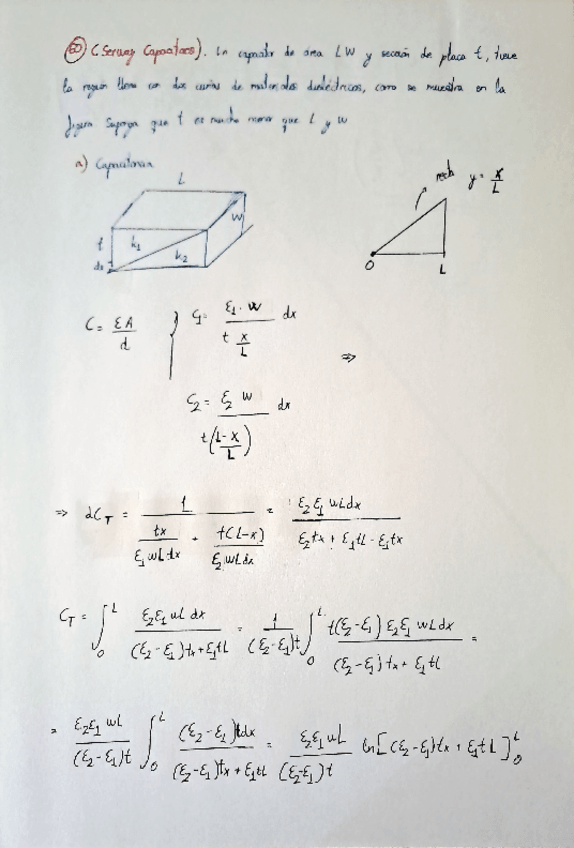 60 (Serway Capacitores). Un capacitor de área LW y sección de placa t, tiene
la region llena con dos cuñas de materiales dieléctricos, como se muestra en la
figura Suponga que t es mucho menor que L y W
a) Capacitancia
L
W
t
k₁
k₂
dx
recta y = x/L
O
L
C = εA/d } C₁ = ε₁·W/(t x/L) dx ⇒
C₂ = ε₂ W/(t(L-x/L)) dx
⇒ dC_T = 1/(tx/(ε₁WLdx) + t(L-x)/(ε₂WLdx)) = ε₂ε₁WLdx/(ε₂tx + ε₁tL - ε₁tx)
C_T = ∫₀ᴸ ε₂ε₁WLdx/((ε₂-ε₁)tx+ε₁tL) = 1/((ε₂-ε₁)t) ∫₀ᴸ t(ε₂-ε₁)ε₂ε₁WLdx/((ε₂-ε₁)tx+ε₁tL) =
= ε₂ε₁WL/((ε₂-ε₁)t) ∫₀ᴸ (ε₂-ε₁)tdx/((ε₂-ε₁)tx+ε₁tL) = ε₂ε₁WL/((ε₂-ε₁)t) ln[(ε₂-ε₁)tx+ε₁tL]₀ᴸ